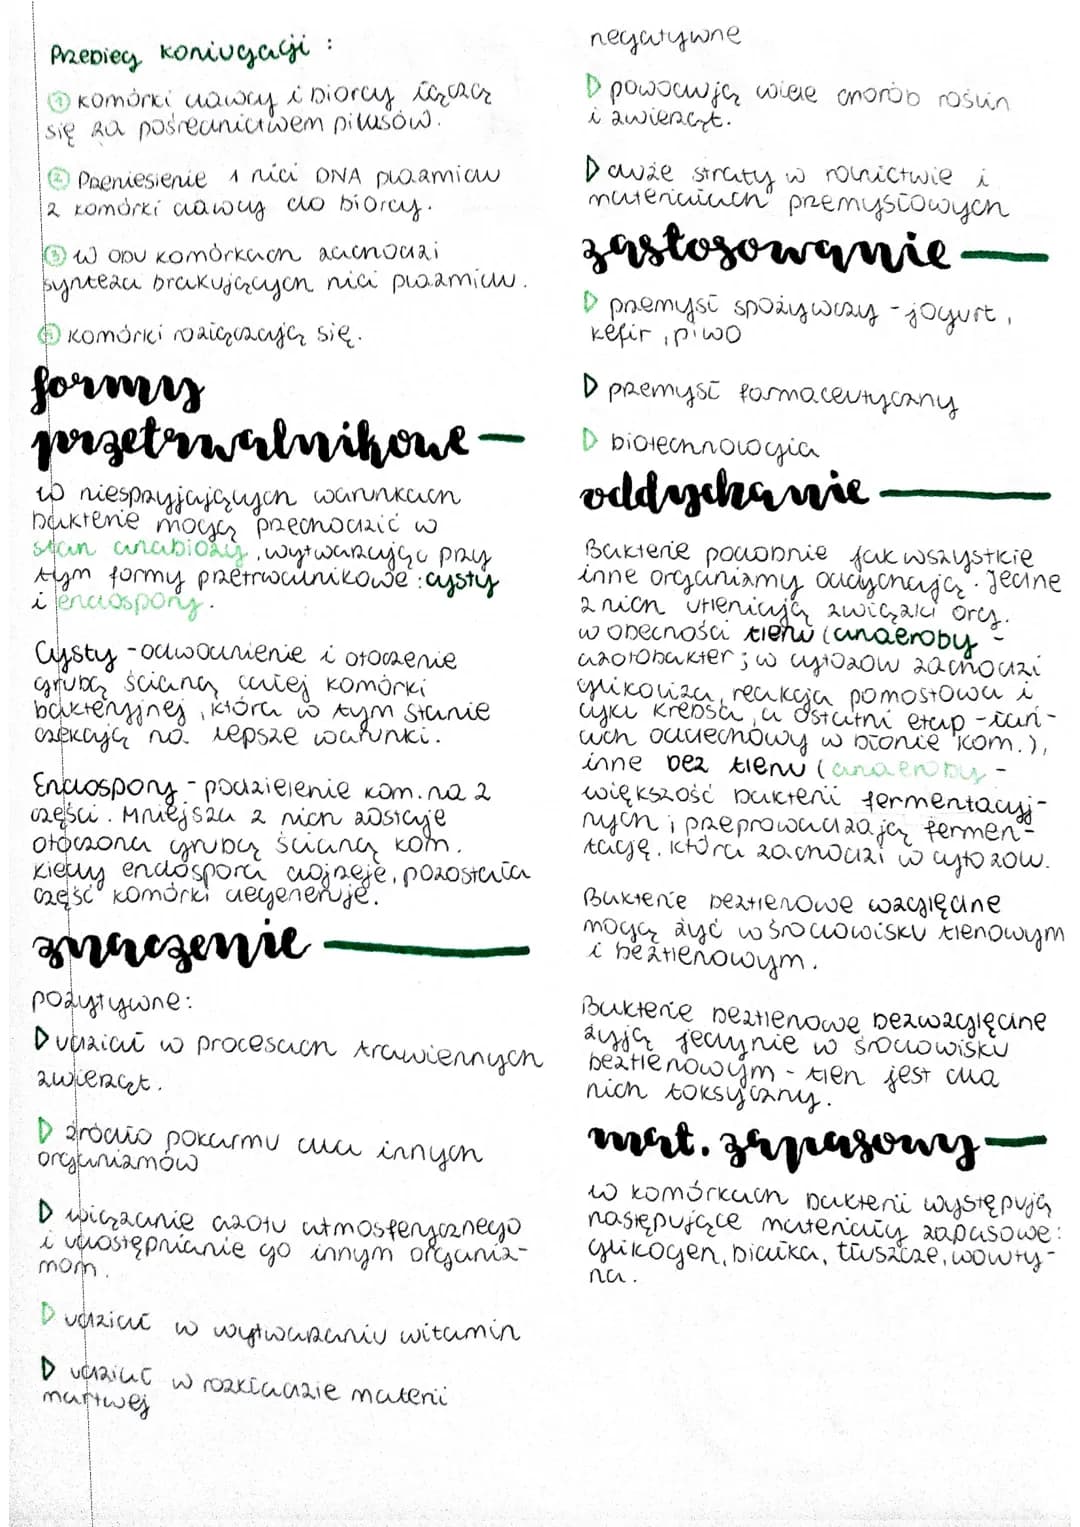 Przebieg koniugacji :
① komórki dawcy i biorcy łączą
się za pośrednictwem pilusów.
② Przeniesienie 1 nici DNA plazmidu
z komórki dawcy do biorcy.
③ W obu komórkach zachodzi
synteza brakujących nici plazmidu.
④ komórki rozłączają się.
formy
przetrwalnikowe
w niesprzyjających warunkach
bakterie mogą przechodzić w
stan anabiozy, wytwarzając przy
tym formy przetrwalnikowe: cysty
i endospory.
Cysty - odwodnienie i otoczenie
grubą ścianą całej komórki
bakteryjnej, która w tym stanie
czekają na lepsze warunki.
Endospory - podzielenie kom. na 2
części. Mniejsza z nich zostaje
otoczona grubą ścianą kom.
kiedy endospora dojrzeje, pozostała
część komórki degeneruje.
znaczenie
pozytywne:
udział w procesach trawiennych
zwierząt.
źródło pokarmu dla innych
organizmów
wiązanie azotu atmosferycznego
i udostępnianie go innym organiz-
mom.
udział w wytwarzaniu witamin
udział w rozkładzie materii
martwej
negatywne
powodują wiele chorób roślin
i zwierząt.
duże straty w rolnictwie i
materiałach przemysłowych
zastosowanie
przemysł spożywczy - jogurt,
kefir, piwo
przemysł farmaceutyczny
biotechnologia
oddychanie
Bakterie podobnie jak wszystkie
inne organizmy oddychają. Jedne
z nich utleniają związki org.
w obecności tlenu (anaeroby -
azotobakter; w cytozolu zachodzi
glikoliza, reakcja pomostowa i
cykl Krebsa, a ostatni etap - łań-
uch oddechowy w błonie kom.),
inne bez tlenu (anaeroby -
większość bakterii fermentacyj-
nych; przeprowadzają fermen-
tację, która zachodzi w cytozolu.
Bakterie beztlenowe względne
mogą żyć w środowisku tlenowym
i beztlenowym.
Bakterie beztlenowe bezwzględne
żyją jedynie w środowisku
beztlenowym - tlen jest dla
nich toksyczny.
mat. zapasowy
w komórkach bakterii występują
następujące materiały zapasowe:
glikogen, białka, tłuszcze, woluty-
na.